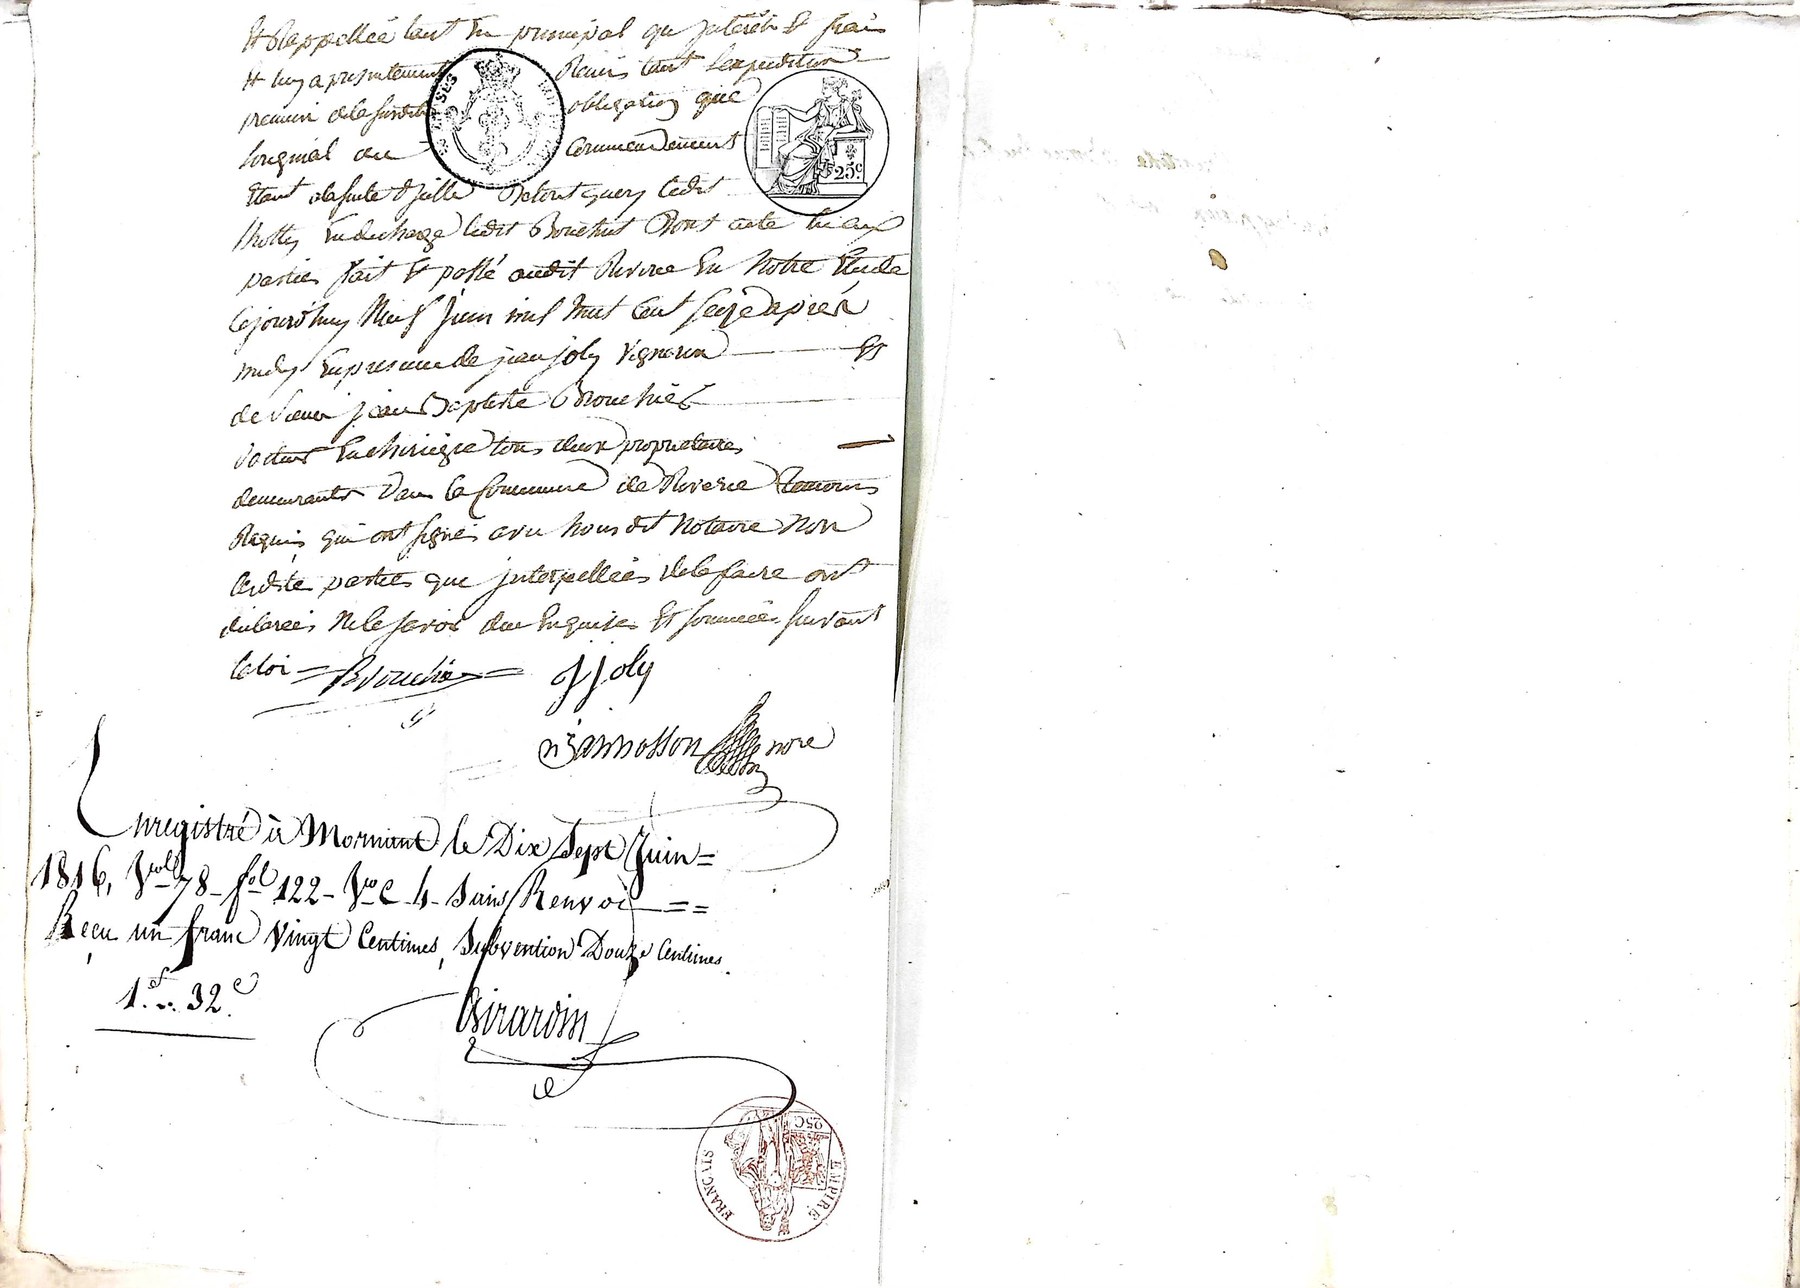 Et Rappellée tant En principal qu jnterêts Et frais
Et luy a presentement Remis tant Lexpedition
premiere de la susditte obligation que
Loriginal du Commandement
Étant ensuite d'jcelle Ledit
Enducharge ledit Bouchut Dont acte
parties fait Et passé audit Riverie En Notre Etude
Cejourd'huy Neuf Juin mil huit Cent Seize après
midy En presence de jean joly Vigneron Et
de Sieur jean Baptiste Brouchier
En chirurgie tous deux proprietaires
demeurants dans la Commune de Riverie temoins
Requis qui ont signés avec Nous dit Notaire Non
lesdites parties que jnterpellées de le faire ont
déclarées Ne le savoir due Enquises Et sommées suivant
la loi = Brouchié = J joly
Jannosson nore
Enregistré à Mornant le Dix Sept Juin =
1816, Vol 78 - fol 122 - Vo C 4 Sans Renvoi = =
Reçu un franc Vingt Centimes, Subvention Douze Centimes.
1f .. 32c.
Girardin
25c.
EMPIRE FRANÇAIS
25C